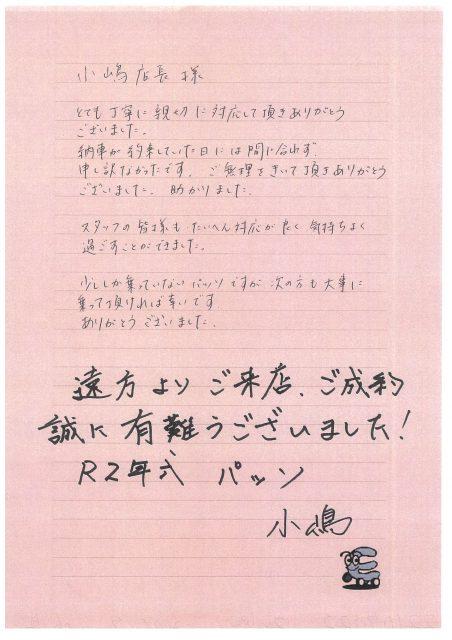 小嶋店長 様
とても丁寧に親切に対応して頂きありがとう
ございました。
納車が約束していた日には間に合わず
申し訳なかったです。ご無理をきいて頂きありがとう
ございました。助かりました。
スタッフの皆様も たいへん対応が良く 気持ちよく
過ごすことができました。
少ししか乗っていないパッソですが 次の方も大事に
乗って頂ければ幸いです
ありがとうございました。
遠方よりご来店、ご成約
誠に有難うございました!
R2年式 パッソ
小嶋